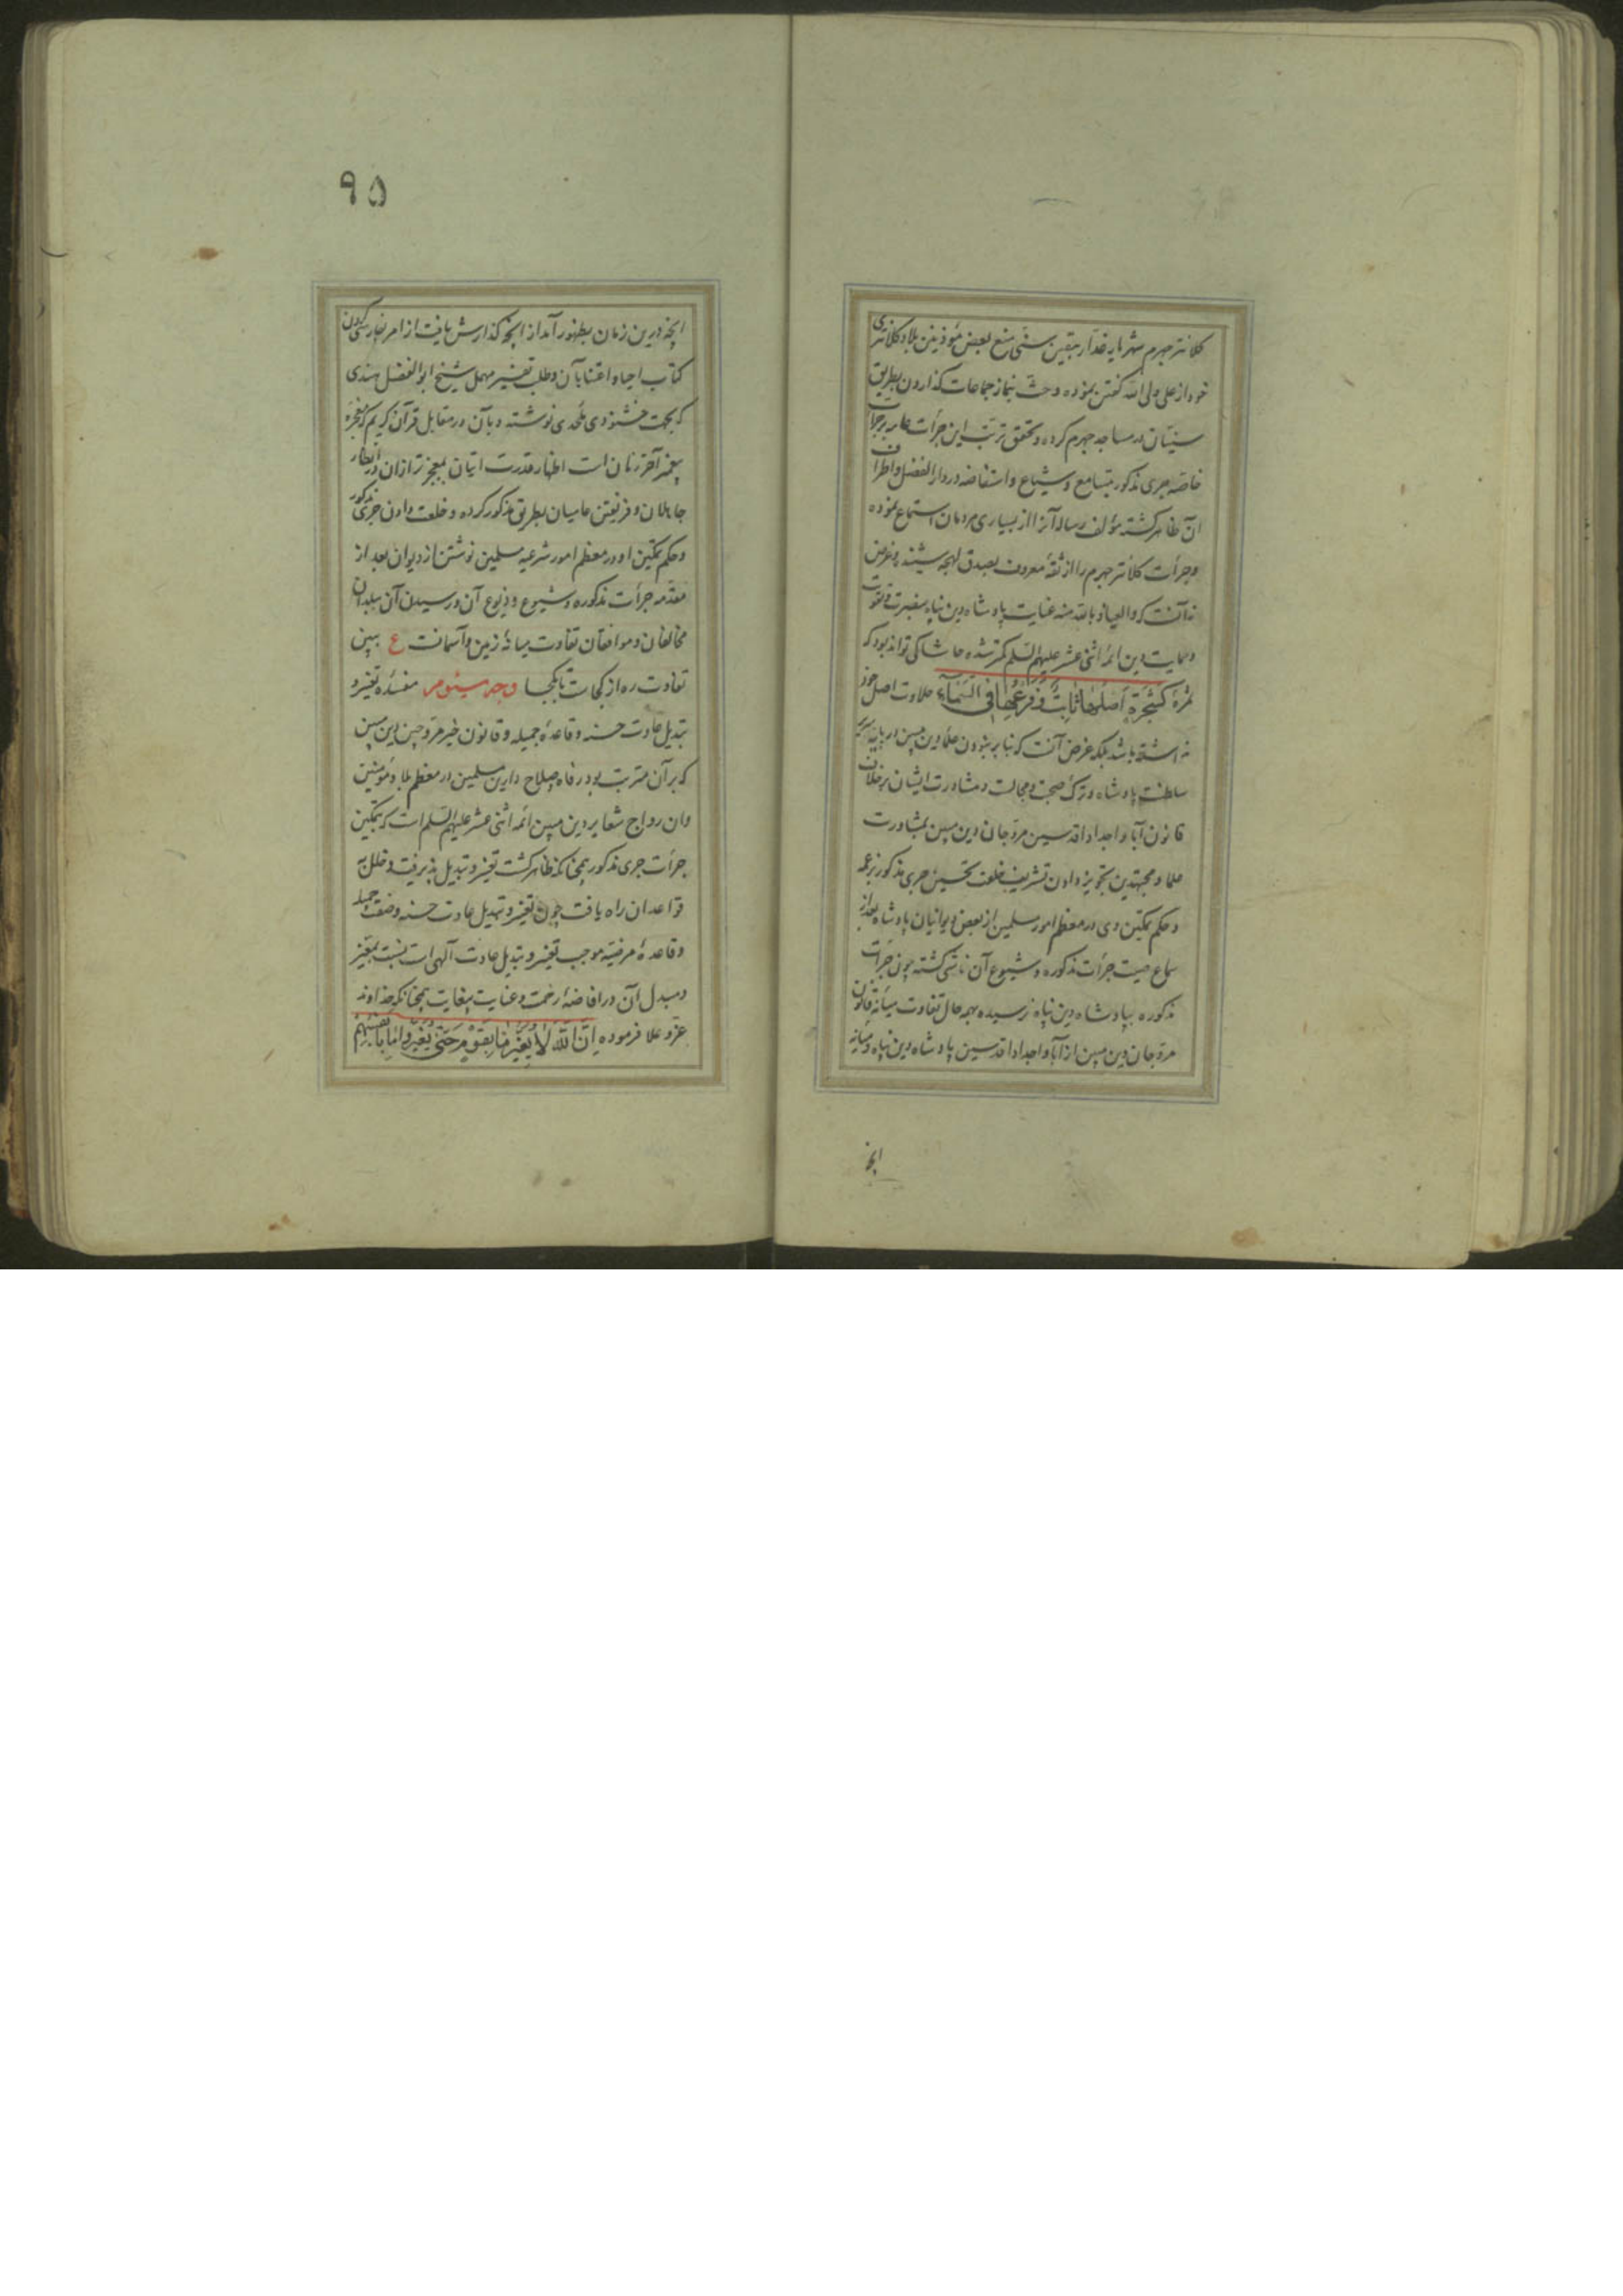 کلانتر جهرم شهر مایه غدار بیقین سنی منع بعض مؤذنین بلاد کلانتری
خود از علی ولی الله گفتن نموده و حث نماز جماعات گذاردن بطریق
سنیان در مساجد جهرم کرده و تحقق ترتب این جرأت عامه بر جرأت
خاصه جری مذکور بتسامع و شیاع و استفاضه در دار الفضل و اطراف
آن ظاهر گشته مؤلف رساله آنرا از بسیاری مردمان استماع نموده
و جرأت کلانتر جهرم را از ثقهٔ معروف بصدق لهجه شنیده و غرض
نه آنست که والعیاذ بالله منه عنایت پادشاه دین پناه بنصرت و تقویت
و حمایت دین ائمه اثنی عشر علیهم السلم کمتر شده حاشا کی تواند بود که
ثمرهٔ کشجرة اصلها ثابت و فرعها فی السماء حلاوت اصل خود
نداشته باشد بلکه غرض آنست که بنا بر نبودن علماء دین مبین در پایه سریر
سلطنت پادشاه و ترک صحبت و مجالست و مشاورت ایشان بر خلاف
قانون آبا و اجداد اقدسین مروجان دین مبین بمشاورت
علما و مجتهدین تجویز دادن تشریف خلعت تحسین جری مذکور بر عمد
و حکم تمکین وی در معظم امور مسلمین از بعض دیوانیان پادشاه بعد از
سماع صیت جرأت مذکوره و شیوع آن ناشی گشته چون جرأت
مذکوره بپادشاه دین پناه نرسیده بهمه حال تفاوت میانهٔ قانون
مروجان دین مبین از آبا و اجداد اقدسین پادشاه دین پناه و میانهٔ
آنچه
۹۵
آنچه درین زمان بظهور آمد از آنچه گذارش یافت از امر بفارسی کردن
کتاب احیا و اعتنا بآن و طلب تفسیر مهمل شیخ ابو الفضل هندی
که بجهت خشنودی ملحدی نوشته و بآن در مقابل قرآن کریم که معجزهٔ
پیغمبر آخر زمان است اظهار قدرت اتیان بمعجزتر از آن در انظار
جاهلان و فریفتن عامیان بطریق مذکور کرده و خلعت دادن جری مذکور
و حکم تمکین او در معظم امور شرعیه مسلمین نوشتن از دیوان بعد از
مقدمه جرأت مذکوره و شیوع و ذیوع آن و رسیدن آن ببلدان
مخالفان و موافقان تفاوت میانهٔ زمین و آسمانست ع ببین
تفاوت ره از کجاست تا بکجا وجه سیئوم مفسدهٔ تغییر و
تبدیل عادت حسنه و قاعدهٔ جمیله و قانون خیر مروجین دین مبین
که بر آن مترتب بود رفاه صلاح دارین مسلمین در معظم بلاد مؤمنین
و ان رواج شعایر دین مبین ائمه اثنی عشر علیهم السلم است که بتمکین
جرأت جری مذکور همچنانکه ظاهر گشت تغییر و تبدیل پذیرفت و خلل به
قواعد ان راه یافت چون تغییر و تبدیل عادت حسنه و صفت جمیله
و قاعدهٔ مرضیه موجب تغییر و تبدیل عادت آلهی است نسبت بمغیر
و مبدل آن در افاضهٔ رحمت و عنایت بیغایت همچنانکه خداوند
عز و علا فرموده اِنَّ اللّٰهَ لا یُغَیِّرُ ما بِقَوْمٍ حَتّیٰ یُغَیِّروا ما بِاَنْفُسِهِمْ